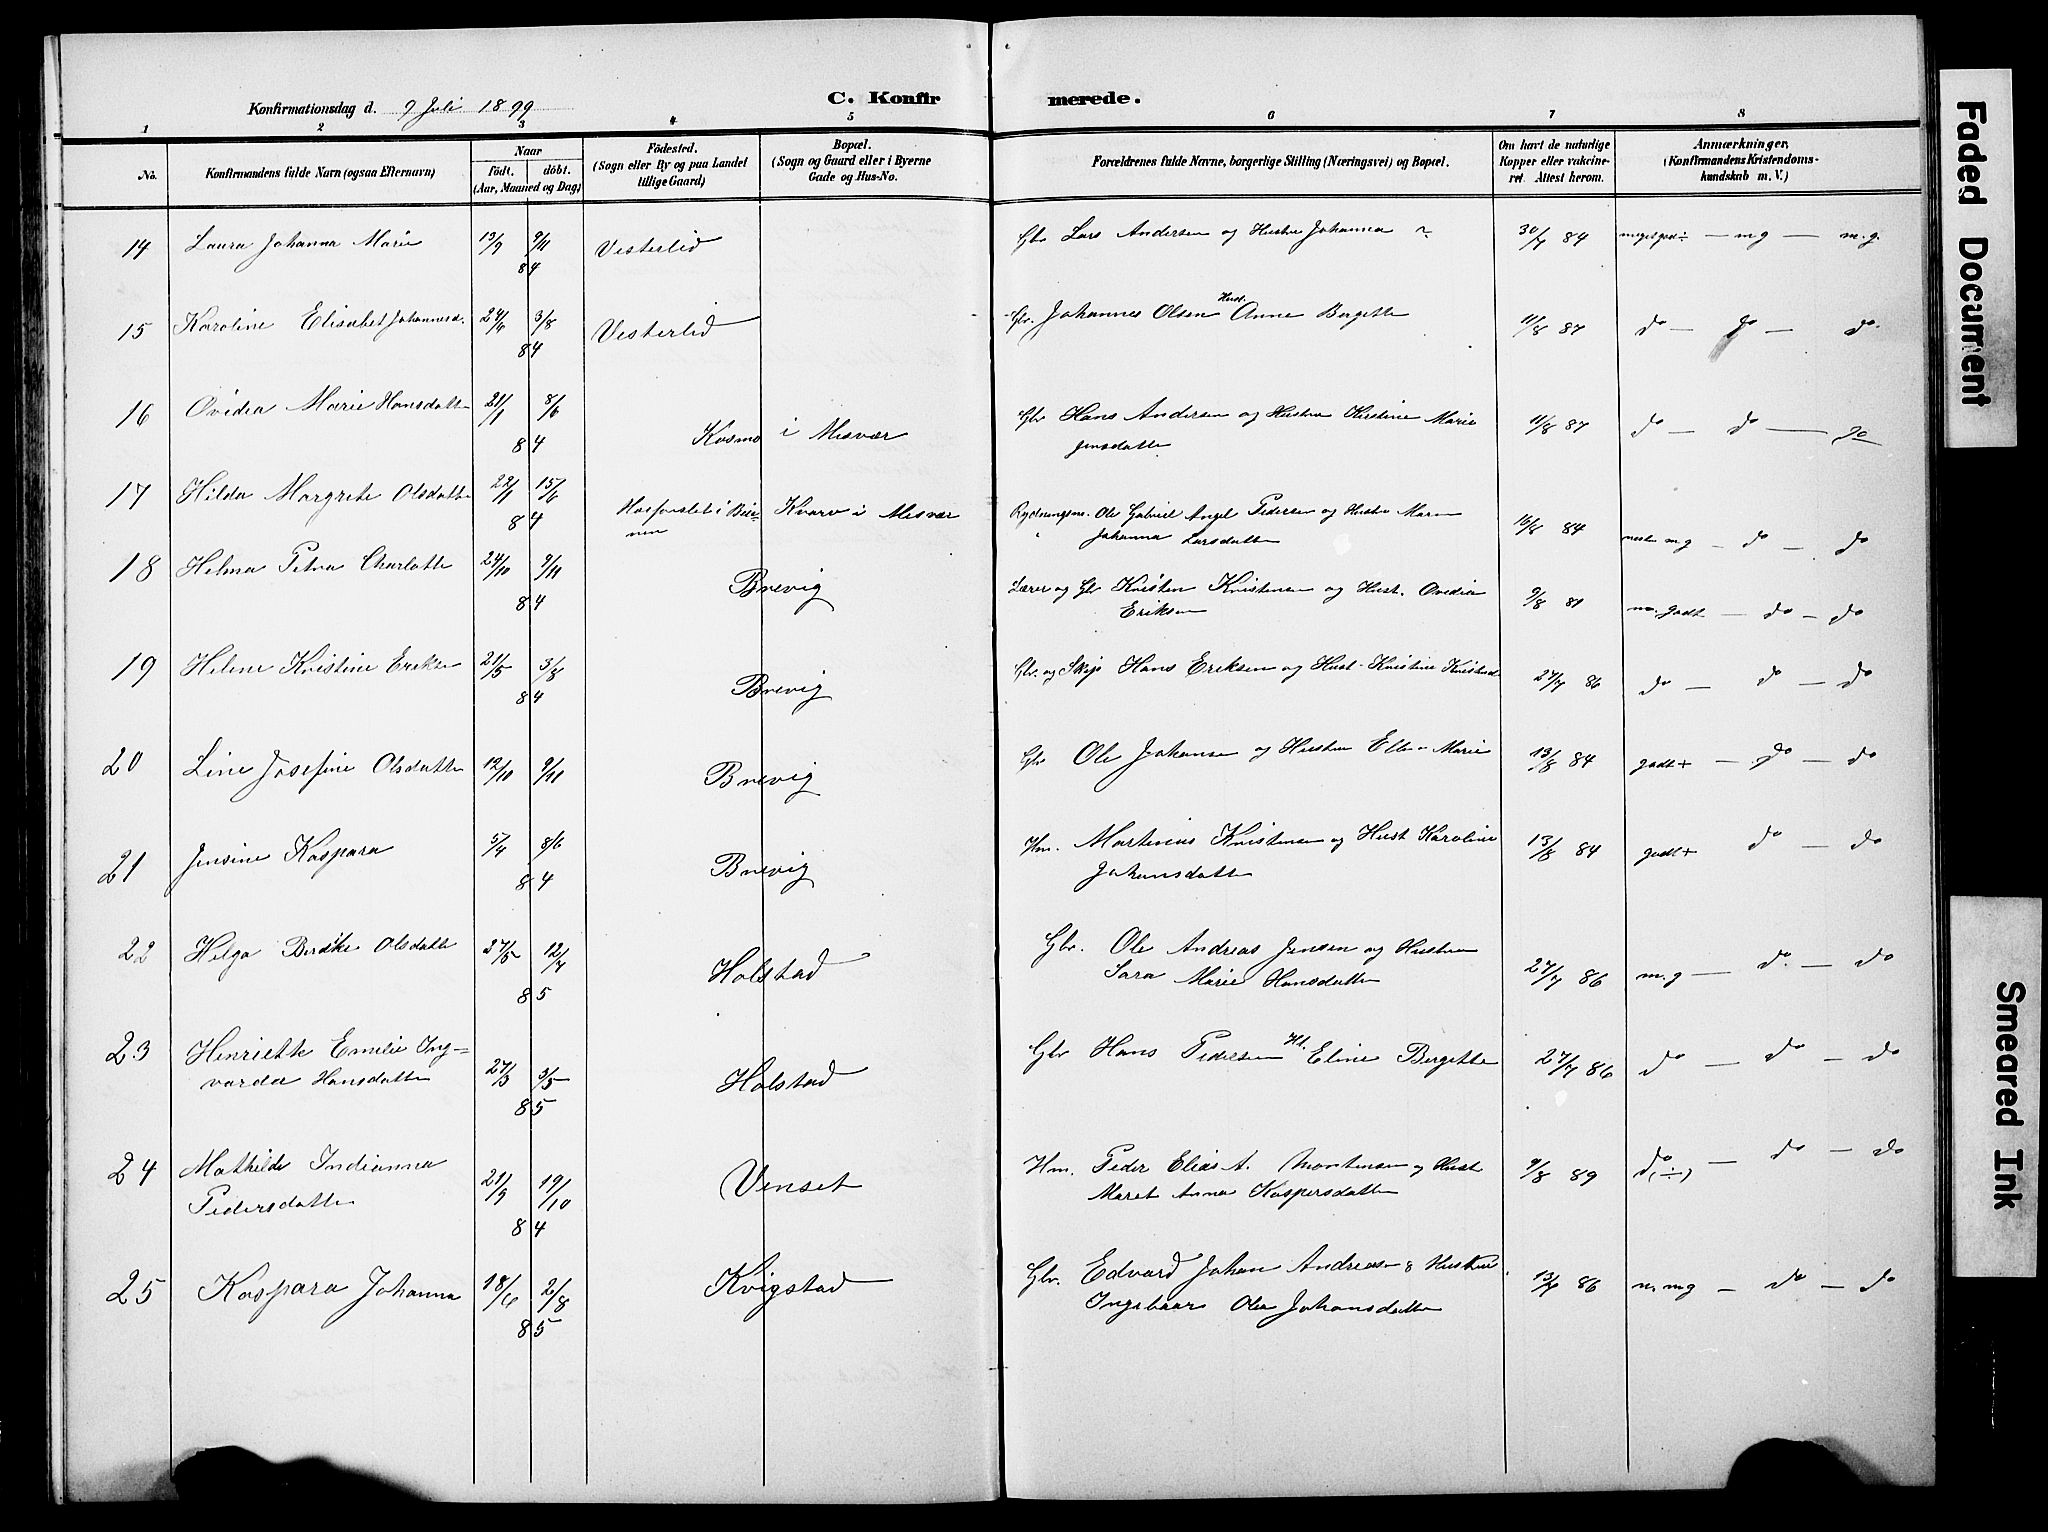 Konfirmationsdag d. 9 Juli 1899 C. Konfirmerede.
1 2 3 4 5 6 7 8
No. Konfirmandens fulde Navn (ogsaa Efternavn) Naar født. døbt. (Aar, Maaned og Dag) Fødested. (Sogn eller By og paa Landet tillige Gaard) Bopæl. (Sogn og Gaard eller i Byerne Gade og Hus-No. Forældrenes fulde Navne, borgerlige Stilling (Næringsvei) og Bopæl. Om havt de naturlige Kopper eller vakcineret. Attest herom. Anmærkninger, (Konfirmandens Kristendomskundskab m. V.)
14 Laura Johanna Marie 13/9 9/11 Vesterlid Gbr Lars Andersen og Hustru Johanna 30/7 84 — mg — m.g.
84
15 Karoline Elisabet Johannesd. 24/6 3/8 Vesterlid Gbr. Johannes Olsen Hust. Anne Bergitte 11/8 87 do — do — do.
84
16 Ovidia Marie Hansdatter 21/1 8/6 Kosmo i Misvær Gbr Hans Andersen og Hustru Kristine Marie 11/8 87 do — do — do
84 Jensdatter
17 Hilda Margrete Olsdatter 22/1 15/6 Kvarv i Misvær Rydningsm. Ole Gabriel Angel Pedersen og Hustru Maren 16/8 84 mg — do — do
84 Johanna Larsdatter
18 Helma Petra Charlotte 24/10 9/11 Brevig Lærer og Gbr Kristen Kristensen og Hust. Ovidia 9/8 godt — do — do
84 Eriksen
19 Helene Kristine Eriksen 21/5 3/8 Brevig Gbr. og Skip Hans Eriksen og Hust. Kristine 27/7 86 do — do — do
84
20 Line Josefine Olsdatter 12/10 9/11 Brevig Gbr Ole Johansen og Hustru Ellen Marie 13/8 84 godt + — do — do
84
21 Jensine Kaspara 5/4 8/6 Brevig Hm. Martinius Kristensen og Hust Karoline 13/8 84 godt + do — do
84 Johansdatter
22 Helga Olsdatter 27/5 12/7 Holstad Gbr. Ole Andreas Jensen og Hustru 27/7 86 m.g — do. — do
85 Sara Marie Hansdatter
23 Henriette Emelie Ing- Gbr Hans Pedersen Eline Bergitte 27/7 86 do — do — do
varda Hansdatter 27/3 3/5 Holstad
85
24 Mathilde Indianna 21/9 19/10 Venset Hm. Peder Elias A. Mortensen og Hust 9/8 89 do (÷) — do — do
Pedersdatter 84 Maret Anna Kaspersdatter
25 Kaspara Johanna 18/6 2/8 Kvigstad Gbr. Edvard Johan Andreasen & Hustru 86 n. mg — do — do
85 Olea Johansdatter
Faded Document
Smeared Ink